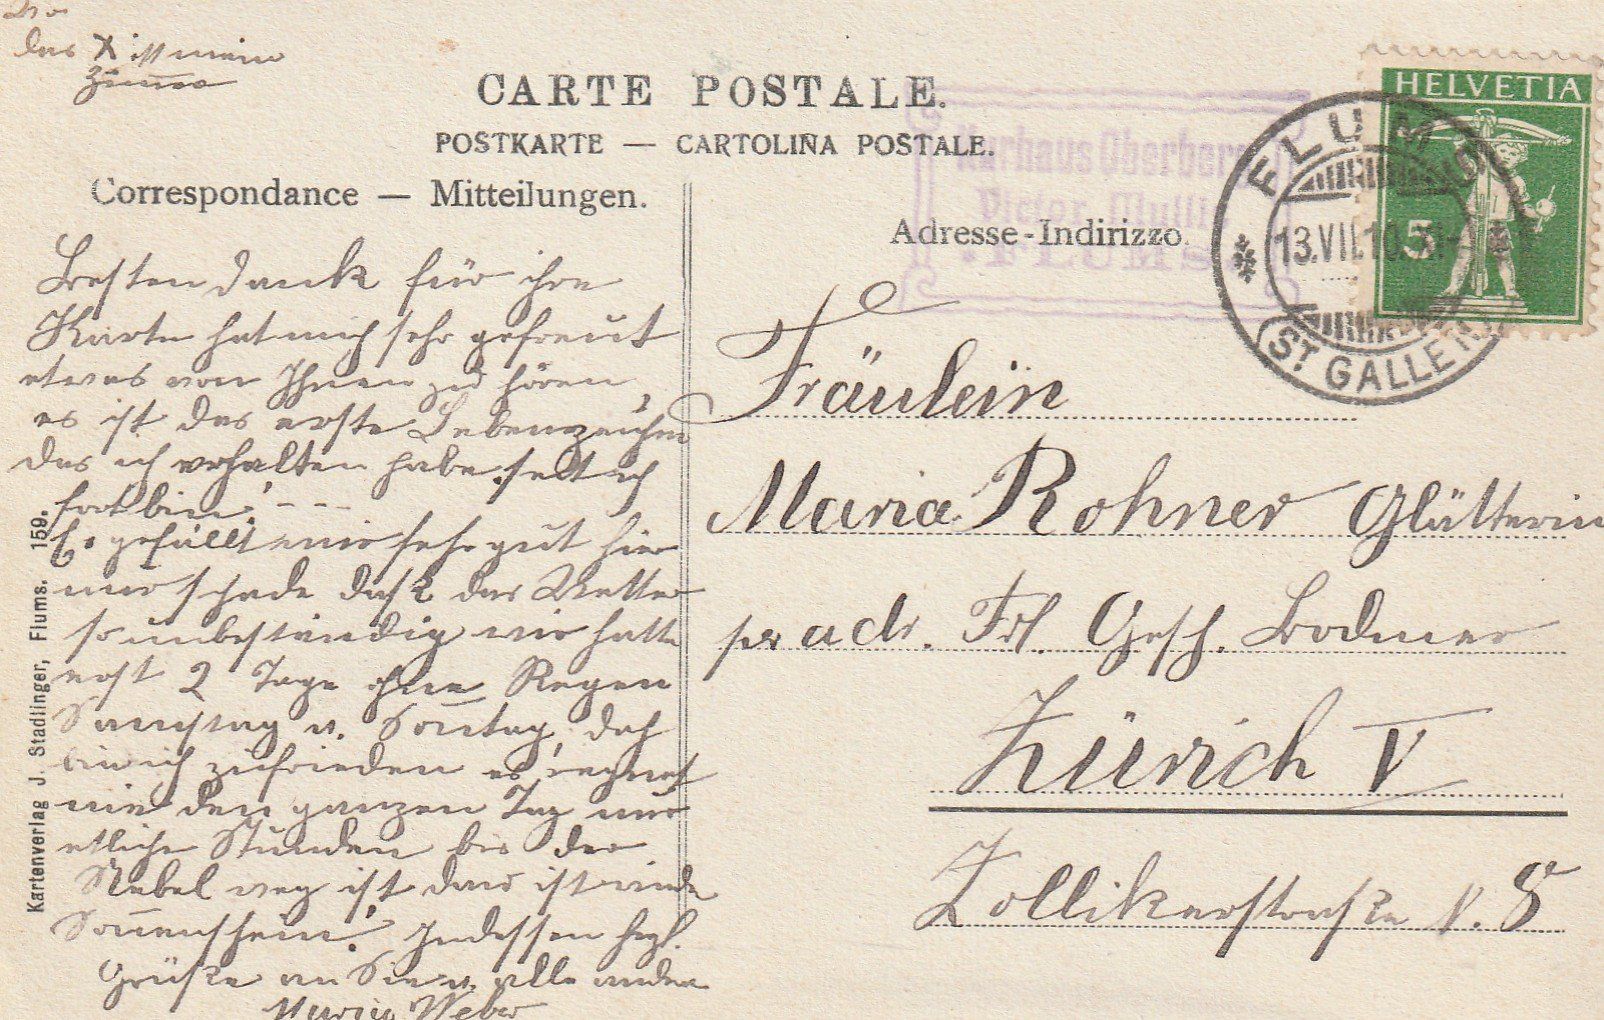 das X ist mein
Zimmer
CARTE POSTALE.
POSTKARTE — CARTOLINA POSTALE.
Correspondance — Mitteilungen.
Adresse - Indirizzo.
Kurhaus Oberberg
Victor Mulli
FLUMS
HELVETIA
5
FLUMS
13.VII.10.
(ST. GALLEN)
Besten Dank für ihre
Karte hat mich sehr gefreut
etwas von Ihnen zu hören,
es ist das erste Lebenszeichen
das ich erhalten habe seit ich
fort bin! - - -
Es gefällt mir sehr gut hier
nur schade dass das Wetter
so unbeständig wir hatten
erst 2 Tage ohne Regen
Samstag u. Sonntag, doch
bin ich zufrieden es regnet
nie den ganzen Tag nur
etliche Stunden bis der
Nebel weg ist dann ist wieder
Sonnenschein! Indessen herzl.
Grüsse an Sie u. alle andern
Maria Weber
Fräulein
Maria Rohner Glätterin
pr adr. Frl. Gesch. Bodmer
Zürich V
Zollikerstrasse N. 8
Kartenverlag J. Stadlinger, Flums. 159.